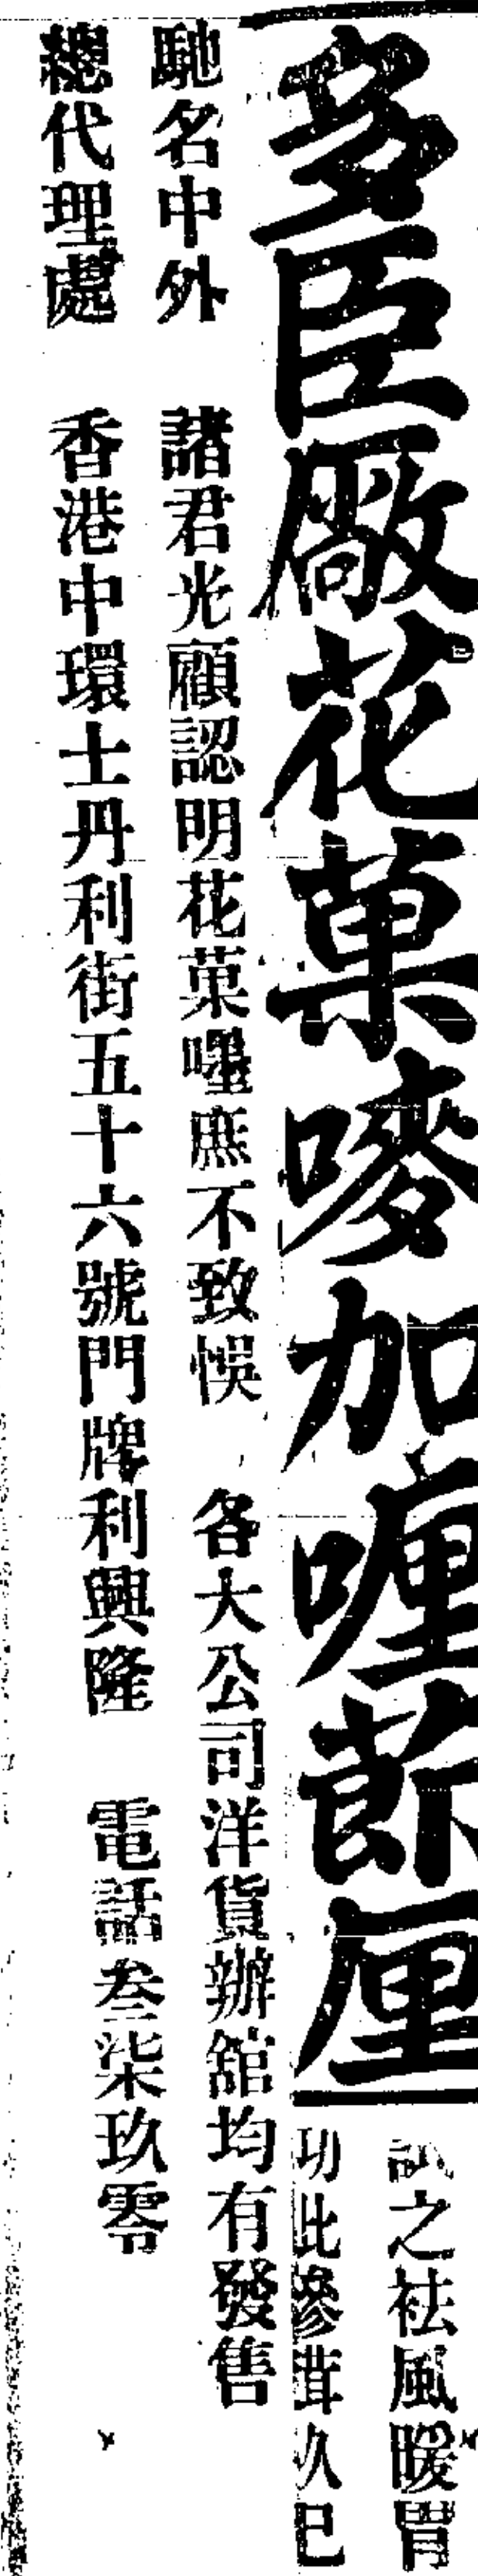 多臣廠花菓嘜加喱莭厘
試之袪風暖胃
功比參茸久已
馳名中外 諸君光顧認明花菓嘜庶不致悞 各大公司洋貨辦舘均有發售
總代理處 香港中環士丹利街五十六號門牌利興隆 電話叁柒玖零